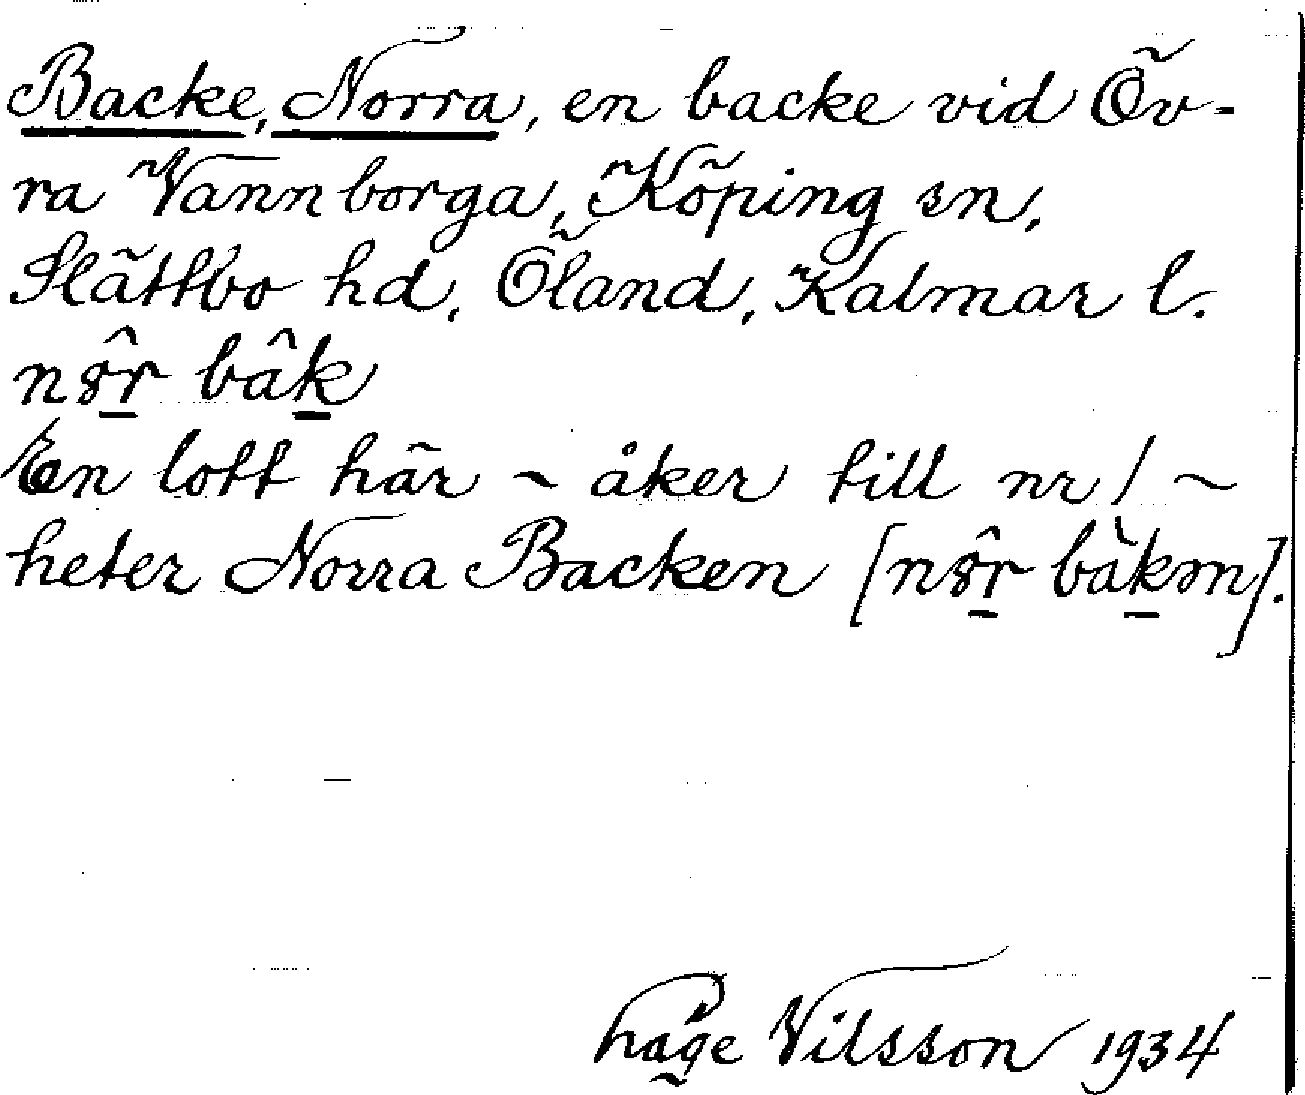 Backe, Norra, en backe vid Öv-
ra Vannborga, Köping sn,
Slättbo hd, Öland, Kalmar l.
nör̂ bâk
En lott här ~ åker till nr 1 ~
heter Norra Backen [nör̂ bàkm].
Håge Nilsson 1934